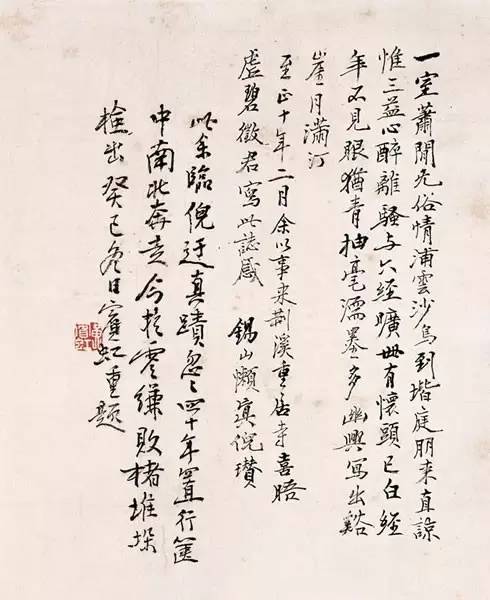 一室蕭閒无俗情浦雲沙鳥到堦庭朋來直諒
惟三益心醉離騷与六經曠世有懷頭已白經
年不見眼猶青抽毫濡墨多幽興寫出谿
崖月滿汀
至正十年二月余以事來荆溪重居寺喜晤
虛碧徵君寫此誌感 錫山懶倪瓚
此余臨倪迂真蹟忽々四十年置行篋
中南北奔走今於零縑敗楮堆垛
檢出癸巳冬日賓虹重題